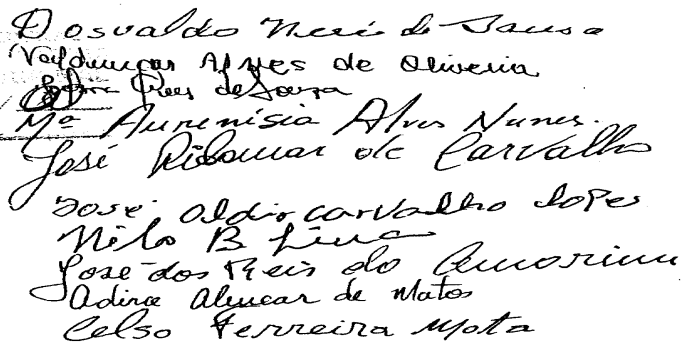 Dosvaldo Neri de Sousa
Valdemar Alves de Oliveria
de Souza
Mª Aurenisia Alves Nunes.
José Ribamar de Carvalho
José Aldir carvalho Lopes
Nilo B Lima
José dos Reis do Amorim
Adirce Alencar de Matos
Celso Ferreira Mota